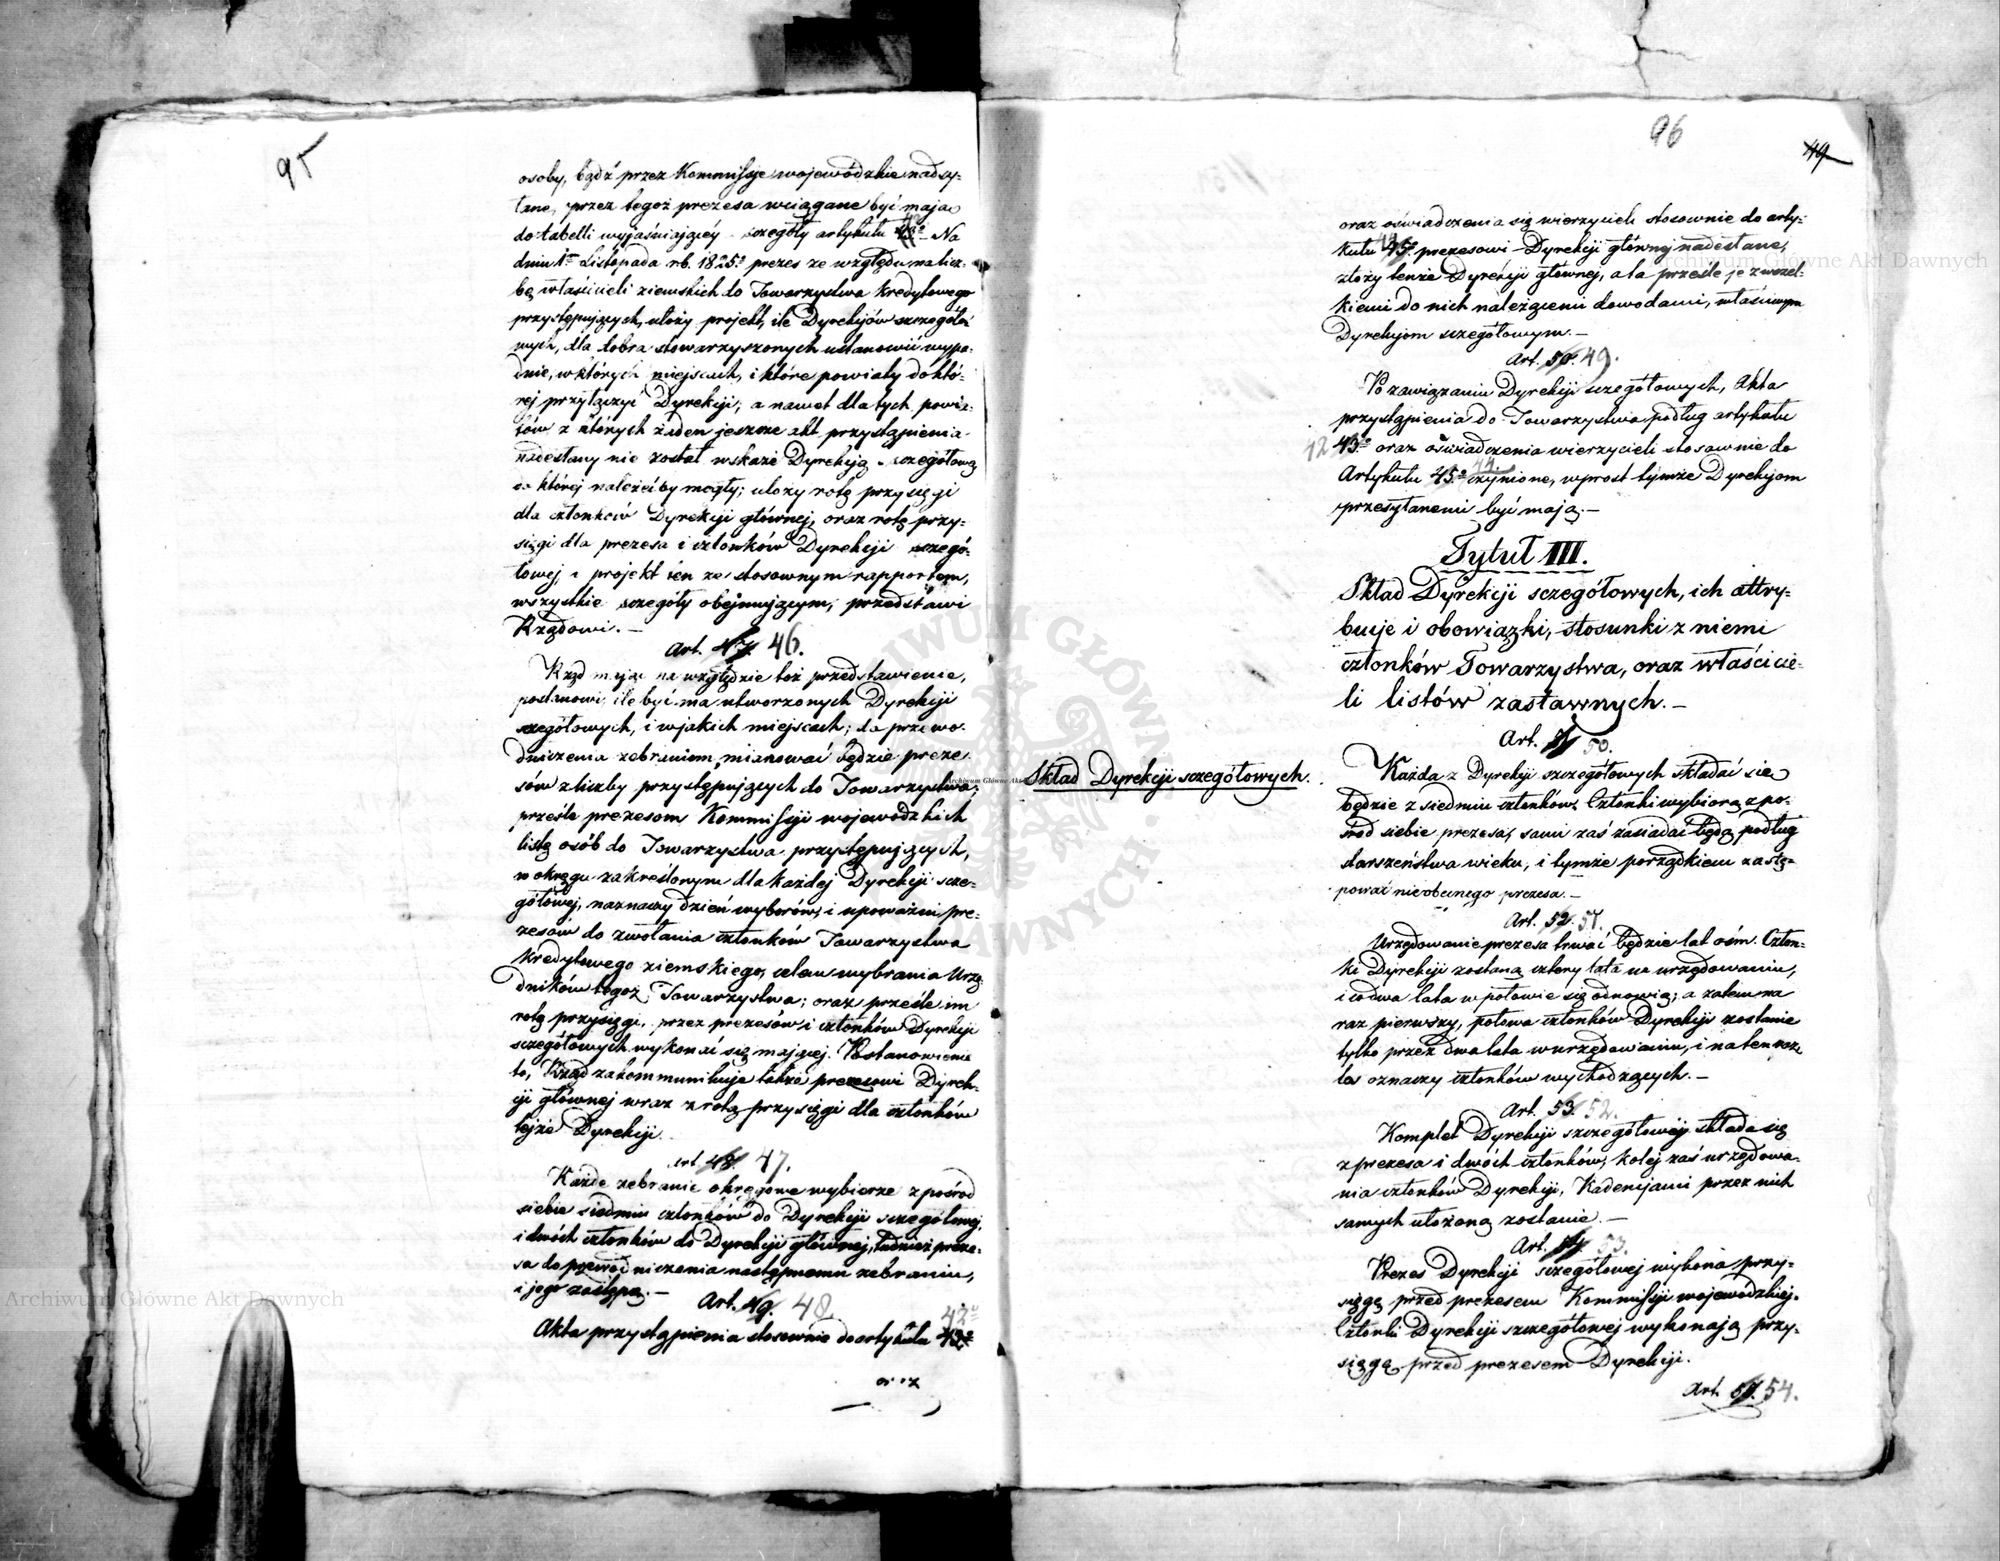 95
osoby, bądź przez Kommissje wojewódzkie nadsy-
łane, przez tegoż prezesa wciągane być mają
do tabelli wyjaśniającéy szczegóły artykułu 43º Na
dniu 1m Listopada rb. 1825º prezes ze względu na licz-
bę właścicieli ziemskich do Towarzystwa Kredytowego
przystępujących, ułoży projekt, ile Dyrekcyów szczegóło-
wych, dla dobra stowarzyszonych ustanowić wypa-
dnie, w których miejscach, i które powiaty do któ-
rej przyłączyć Dyrekcji; a nawet dla tych powia-
tów z których żaden jeszcze akt przystąpienia
nadesłany nie został wskaże Dyrekcją szczegółową
do której należéćby mogły; ułoży rotę przysięgi
dla członków Dyrekcji głównej, oraz rotę przy-
sięgi dla prezesa i członków Dyrekcji szczegó-
łowej, i projekt ten ze stosownym rapportem,
wszystkie szczegóły obejmującym, przedstawi
Rządowi.—
Art. 47 46.
Rząd mając na względzie toż przedstawienie,
postanowi, ile być ma utworzonych Dyrekcji
szczegółowych, i w jakich miejscach; do przewo-
dniczenia zebraniom, mianować będzie preze-
sów z liczby przystępujących do Towarzystwa;
prześle prezesom Kommissji wojewódzkich
listę osób do Towarzystwa przystępujących,
w okręgu zakreślonym dla każdej Dyrekcji szcze-
gółowej, naznaczy dzień wyborów, i upoważni pre-
zesów do zwołania członków Towarzystwa
Kredytowego ziemskiego, celem wybrania Urzę-
dników tegoż Towarzystwa; oraz prześle im
rotę przysięgi, przez prezesów i członków Dyrekcji
szczegółowych wykonać się mającej. Postanowienie
to, Rząd zakommunikuje także prezesowi Dyrek-
cji głównej wraz z rotą przysięgi dla członków
tejże Dyrekcji.
Art 48. 47.
Każde zebranie okręgowe wybierze z pośród
siebie siedmiu członków do Dyrekcji szczegółowej,
i dwóch członków do Dyrekcji głównej, tudzież preze-
sa do przewodniczenia następnemu zebraniu,
i jego zastępcę.—
Art. 49. 48
Akta przystąpienia stosownie do artykułu 43º 42º
oraz
96
49
oraz oświadczenia się wierzycieli stosownie do arty-
kułu 45º 44 prezesowi Dyrekcji głównej nadesłane,
złoży tenże Dyrekcji głównej, a ta prześle je z wszel-
kiemi do nich należącemi dowodami, właściwym
Dyrekcjom szczegółowym.—
Art. 50. 49.
Po zawiązaniu Dyrekcji szczegółowych, Akta
przystąpienia do Towarzystwa podług artykułu
42 43º oraz oświadczenia wierzycieli stosownie do
Artykułu 45º 44. czynione, wprost tymże Dyrekcjom
przesyłanemi być mają.—
Tytuł III.
Skład Dyrekcji szczegółowych, ich attry-
bucje i obowiązki, stosunki z niemi
członków Towarzystwa, oraz właścicie-
li listów zastawnych.—
Art. 51 50.
Skład Dyrekcji szczegółowych.
Każda z Dyrekcji szczegółowych składać się
będzie z siedmiu członków. Członki wybiorą z po-
śród siebie prezesa, sami zaś zasiadać będą podług
starszeństwa wieku, i tymże porządkiem zastę-
pować nieobecnego prezesa.—
Art. 52. 51.
Urzędowanie prezesa trwać będzie lat ośm. Człon-
ki Dyrekcji zostaną cztery lata na urzędowaniu,
i co dwa lata w połowie się odnowią; a zatem na
raz pierwszy, połowa członków Dyrekcji zostanie
tylko przez dwa lata w urzędowaniu, i na ten raz
los oznaczy członków wychodzących.—
Art. 53. 52.
Komplet Dyrekcji szczegółowej składa się
z prezesa i dwóch członków, kolej zaś urzędowa-
nia członków Dyrekcji, Kadencjami przez nich
samych ułożoną zostanie.—
Art. 54 53.
Prezes Dyrekcji szczegółowej wykona przy-
sięgę przed prezesem Kommissji wojewódzkiej.
Członki Dyrekcji szczegółowej wykonają przy-
sięgę przed prezesem Dyrekcji.
Art. 55. 54.
Archiwum Główne Akt Dawnych
Archiwum Główne Akt Dawnych